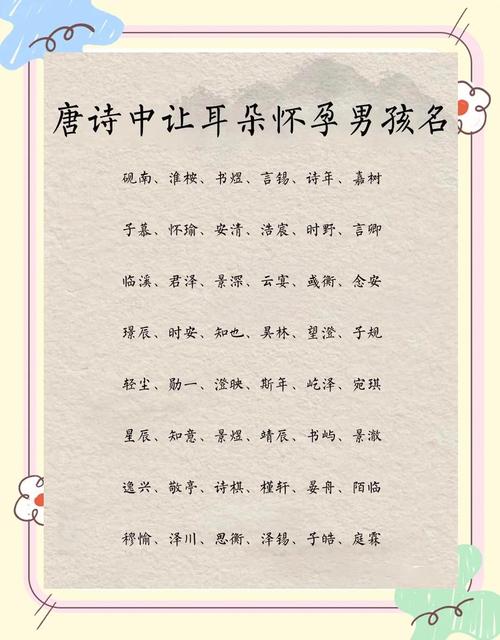 唐诗中让耳朵怀孕男孩名
砚南、淮桉、书煜、言锡、诗年、嘉树
子慕、怀瑜、安清、浩宸、时野、言卿
临溪、君泽、景深、云宴、彧衡、念安
璟辰、时安、知也、昊林、望澄、子规
轻尘、勋一、澄映、斯年、屹泽、宛琪
星辰、知意、景煜、靖辰、书屿、景澈
逸兴、敬亭、诗棋、槿轩、晏舟、陌临
穆愉、泽川、思衡、泽锡、子皓、庭霖